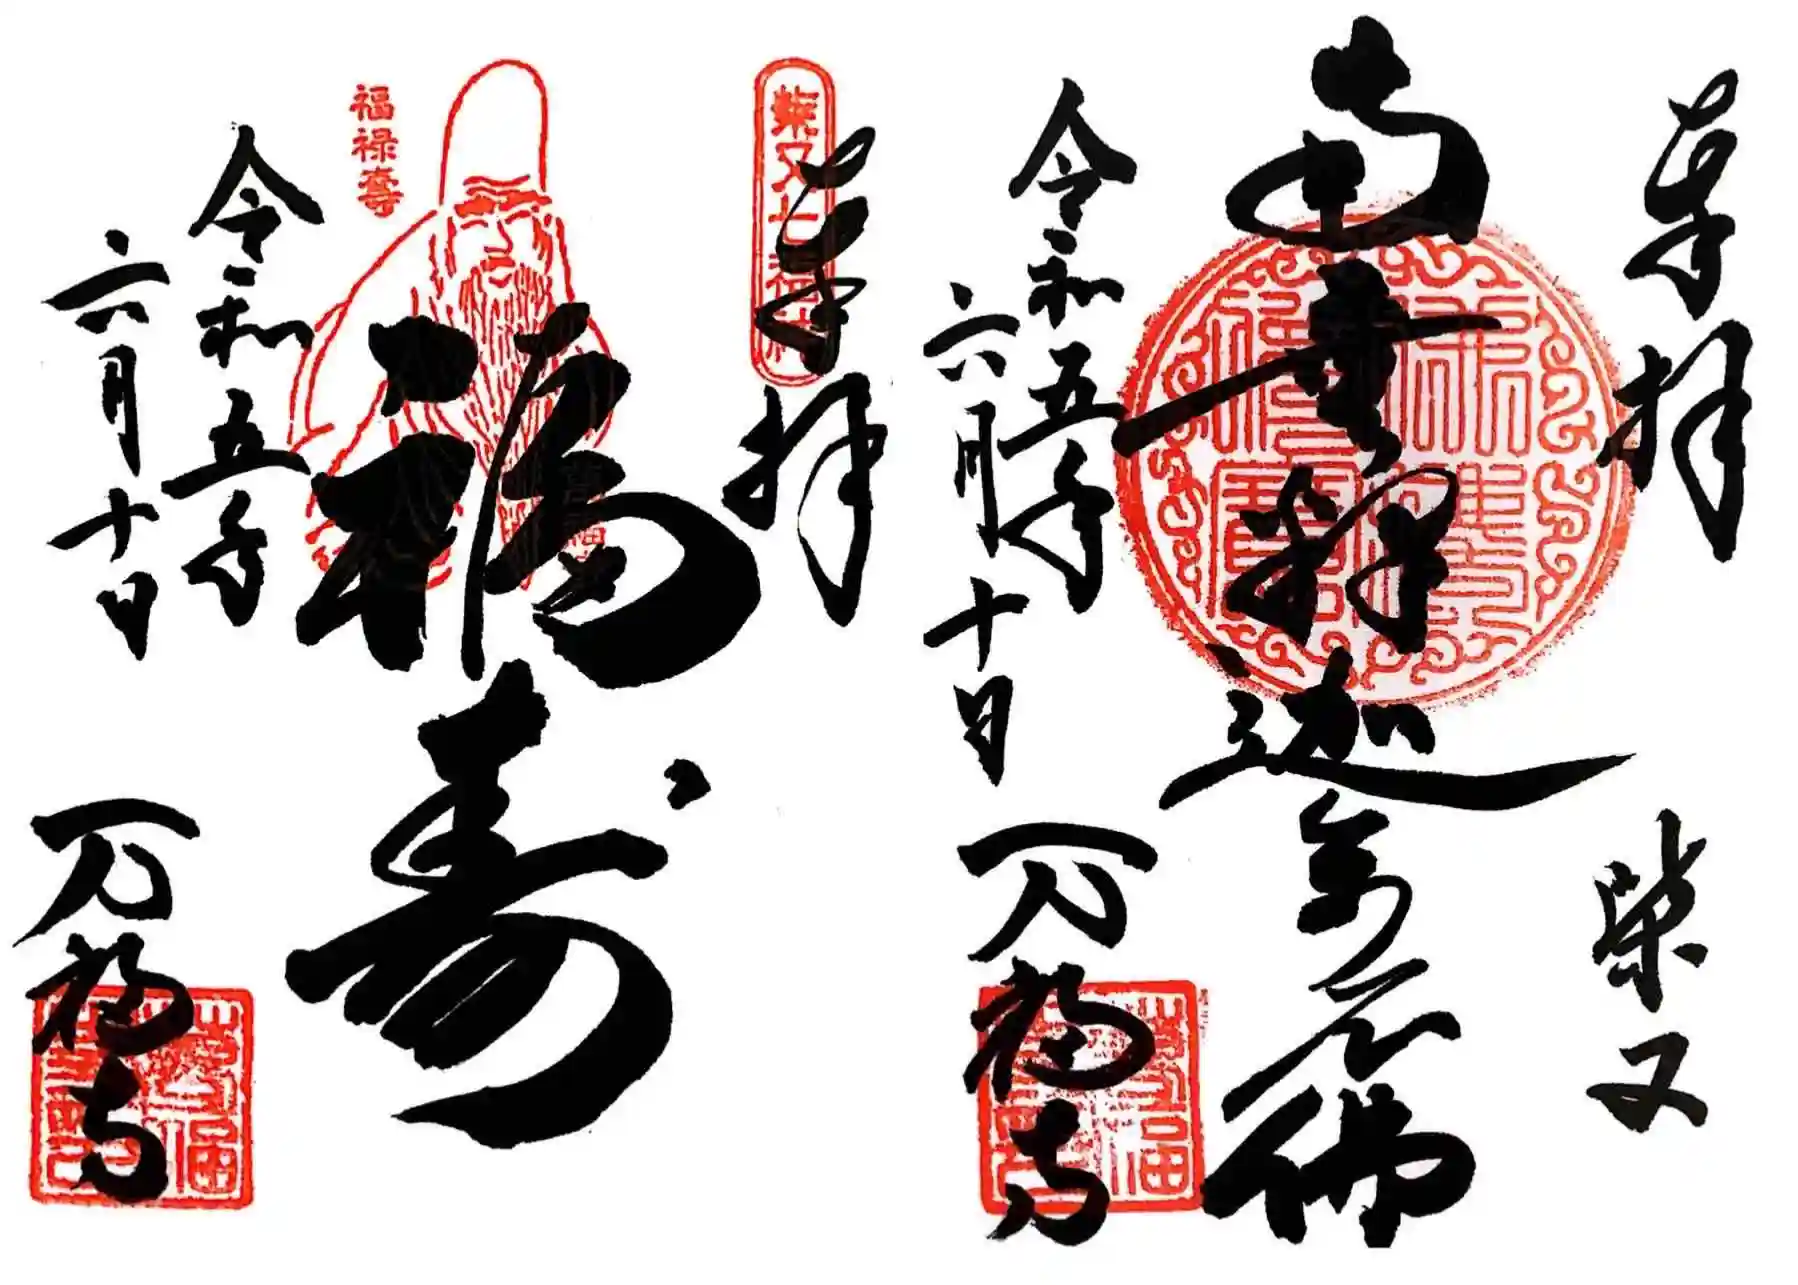 奉拝
柴又
南無釈迦牟尼佛
令和五年
六月十日
万福寺
柴又七福神
奉拝
福寿
福禄壽
令和五年
六月十日
万福寺